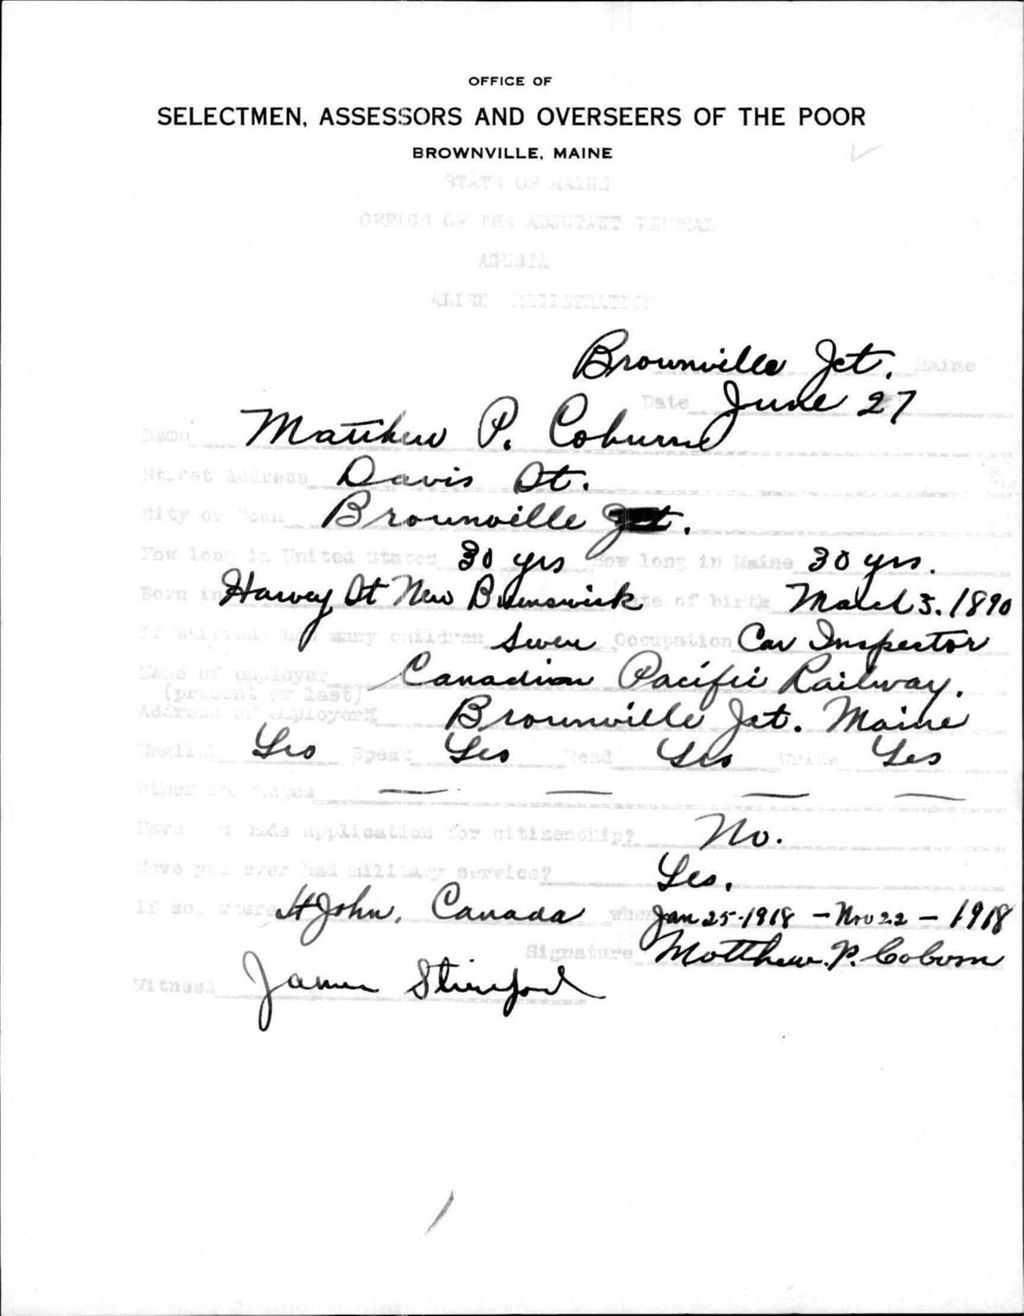 OFFICE OF
SELECTMEN, ASSESSORS AND OVERSEERS OF THE POOR
BROWNVILLE, MAINE
STATE OF MAINE
OFFICE OF THE ADJUTANT GENERAL
AGUSTA
ALIEN REGISTRATION
Brownville Jct. Maine
Date June 27
Name Matthew P. Coburn
Street Address Davis St.
City or Town Brownville Jct.
How long in United States 30 yrs How long in Maine 30 yrs.
Born in Harvey St New Brunswick Date of birth March 3, 1890
If married how many children Seven Occupation Car Inspector
Name of employer Canadian Pacific Railway.
(present or last)
Address of employer Brownville Jct. Maine
English Yes Speak Yes Read Yes Write Yes
Other languages — — — —
Have you made application for citizenship? No.
Have you ever had military service? Yes.
If so, where St John, Canada when Jan 25-1918 - Nov 22 - 1918
Signature Matthew P. Coburn
Witness James